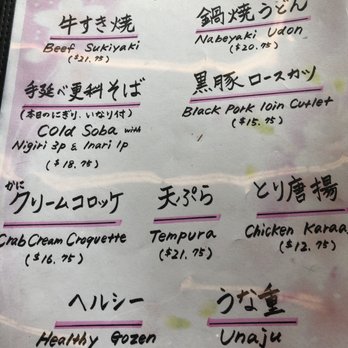 牛すき焼
Beef Sukiyaki
($21.75)
鍋焼うどん
Nabeyaki Udon
($20.75)
手延べ更科そば
(本日のにぎり、いなり付)
Cold Soba with
Nigiri 3p & Inari 1p
($18.75)
黒豚ロースカツ
Black Pork loin Cutlet
($15.75)
かに
クリームコロッケ
Crab Cream Croquette
($16.75)
天ぷら
Tempura
($21.75)
とり唐揚
Chicken Karaa
($12.75)
ヘルシー
Healthy Gozen
うな重
Unaju